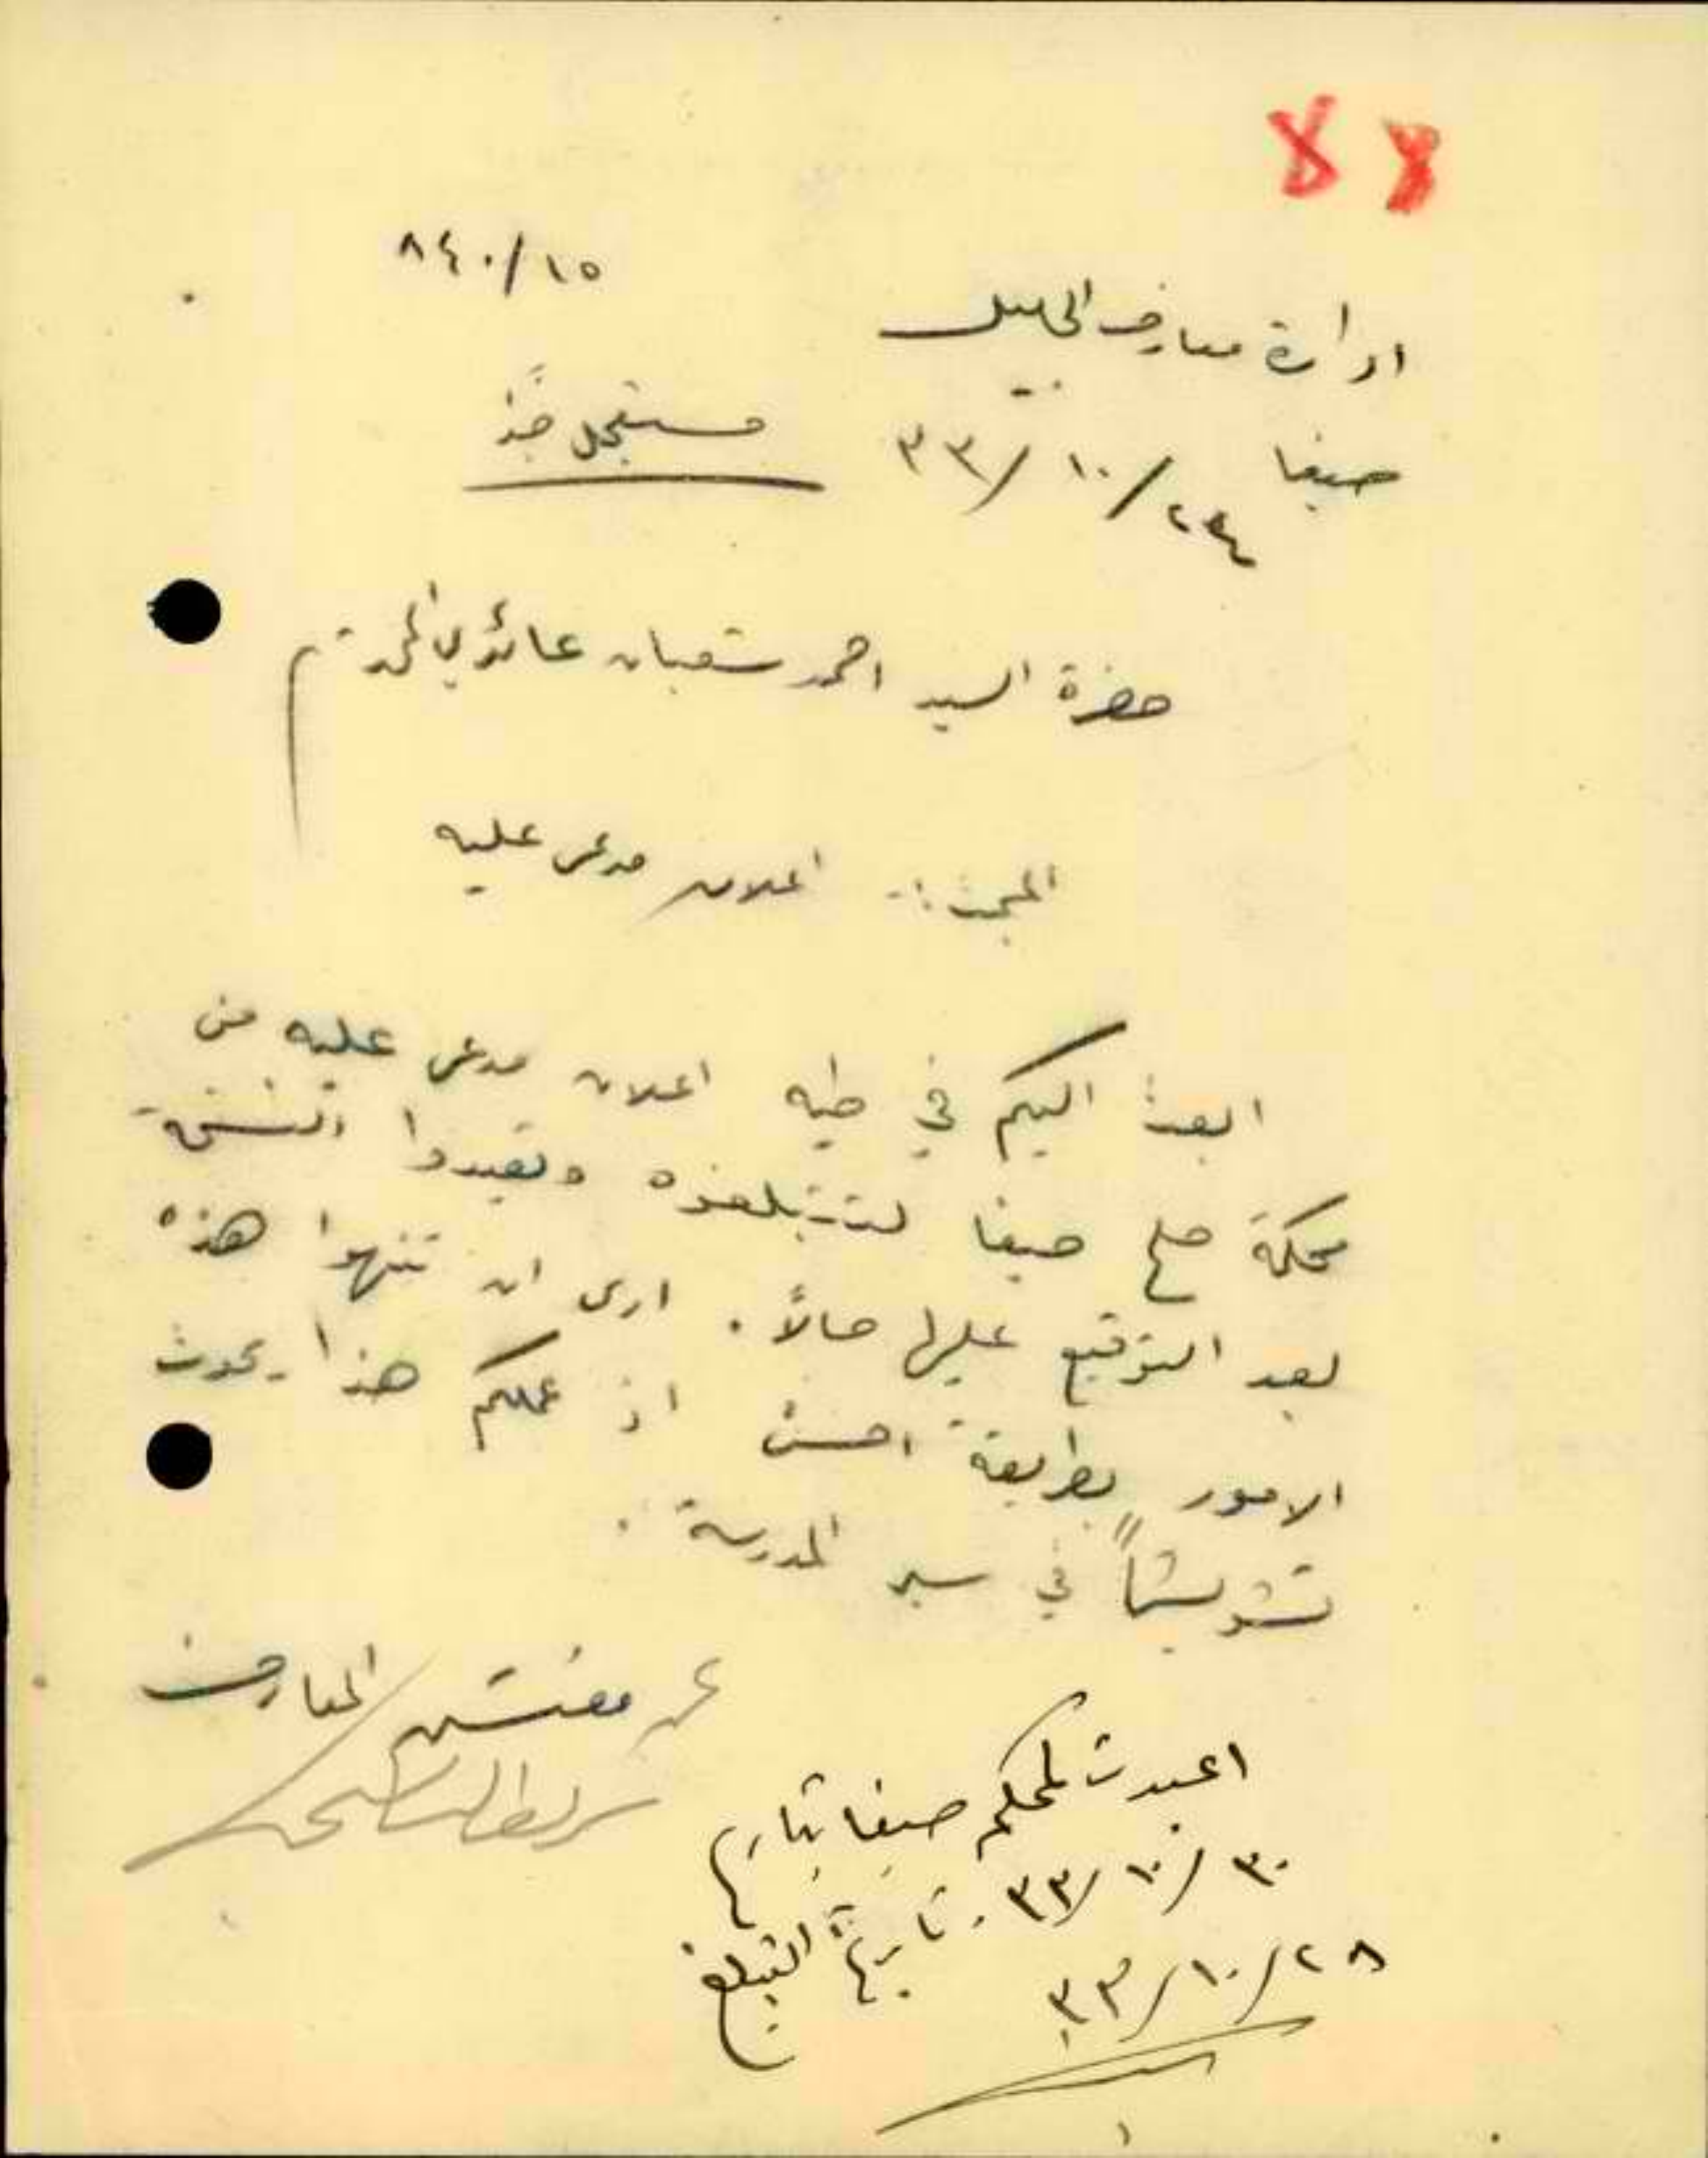 ٨٤٠/١٥
ادارة معارف الجليل
حيفا ٣٣/١٠/٢٤
مستعجل جدًا
حضرة السيد احمد شعبان عائدي المحترم
المبحث :- اعلان مدعى عليه
ابعث اليكم في طيه اعلان مدعى عليه من
محكمة صلح حيفا لتتبلغوه وتعيدوا النسخة
بعد التوقيع عليها حالاً. ارى ان تنهوا هذه
الامور بطريقة احسن اذ عملكم هذا يحدث
تشويشاً في سير المدرسة.
عن مفتش المعارف
اعيدت لمحكمة حيفا بتاريخ
٣٣/١٠/٣٠. تاريخ التبليغ
٣٣/١٠/٢٨